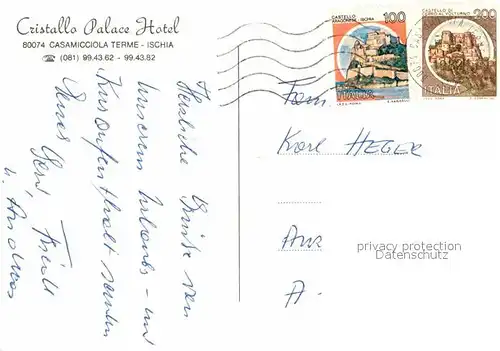 Cristallo Palace Hotel
80074 CASAMICCIOLA TERME - ISCHIA
☎ (081) 99.43.62 - 99.43.82
Herzliche Grüße von
unserem Urlaubs - und
Kuraufenthalt senden
Gerd,
u. Andreas
CASTELLO
ARAGONESE - ISCHIA
100
ITALIA
CASTELLO DI
CERRO AL VOLTURNO
200
ITALIA
Fam.
Karl HEGER
A -
privacy protection
Datenschutz